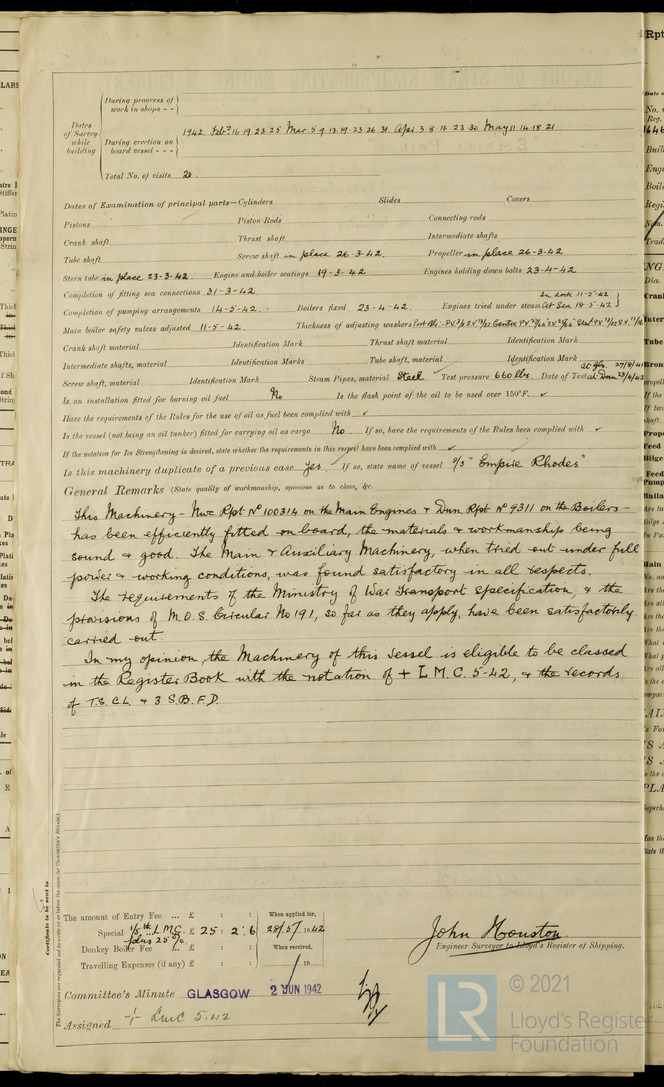 During progress of work in shops - -
Dates of Survey while building
During erection on board vessel - - -
1942. Feb. 16. 19. 23 25 Mar 5. 9. 13. 19. 23. 26. 31. Apr. 3. 8. 16. 23. 30. May 11. 14. 18. 21
Total No. of visits 20.
Dates of Examination of principal parts—Cylinders Slides Covers
Pistons Piston Rods Connecting rods
Crank shaft Thrust shaft Intermediate shafts
Tube shaft Screw shaft in place 26-3-42. Propeller in place 26-3-42
Stern tube in place 23-3-42. Engine and boiler seatings 19-3-42 Engines holding down bolts 23-4-42
Completion of fitting sea connections 31-3-42
Completion of pumping arrangements 14-5-42. Boilers fixed 23-4-42. Engines tried under steam In dock 11-5-42 At Sea 18-5-42
Main boiler safety valves adjusted 11-5-42. Thickness of adjusting washers
Crank shaft material Identification Mark Thrust shaft material Identification Mark
Intermediate shafts, material Identification Marks Tube shaft, material Identification Mark
Screw shaft, material Identification Mark Steam Pipes, material Steel Test pressure 660 lbs Date of Test
Is an installation fitted for burning oil fuel No Is the flash point of the oil to be used over 150°F. ✓
Have the requirements of the Rules for the use of oil as fuel been complied with ✓
Is the vessel (not being an oil tanker) fitted for carrying oil as cargo No If so, have the requirements of the Rules been complied with ✓
If the notation for Ice Strengthening is desired, state whether the requirements in this respect have been complied with ✓
Is this machinery duplicate of a previous case Yes If so, state name of vessel S/S "Empire Rhodes"
General Remarks (State quality of workmanship, opinions as to class, &c.
This Machinery - Nwc. Rpt No 100314 on the Main Engines & Dun Rpt No 9311 on the Boilers -
has been efficiently fitted on board, the materials & workmanship being
sound & good. The Main & Auxiliary Machinery, when tried out under full
power & working conditions, was found satisfactory in all respects.
The requirements of the Ministry of War Transport specification, & the
provisions of M.O.S. Circular No 191, so far as they apply, have been satisfactorily
carried out.
In my opinion, the Machinery of this Vessel is eligible to be classed
in the Register Book with the notation of + L.M.C. 5-42, & the records
of T.S. CL & 3 S.B. F.D.
Certificate to be sent to
The amount of Entry Fee ... £ : : When applied for,
Special 1/5th L.M.C. plus 25% £ 25 : 2 : 6 28/5/1942
Donkey Boiler Fee ... £ : : When received,
Travelling Expenses (if any) £ : : 19
John Houston
Engineer Surveyor to Lloyd's Register of Shipping.
Committee's Minute GLASGOW 2 JUN 1942
Assigned + LMC 5.42
LR
© 2021
Lloyd's Register
Foundation